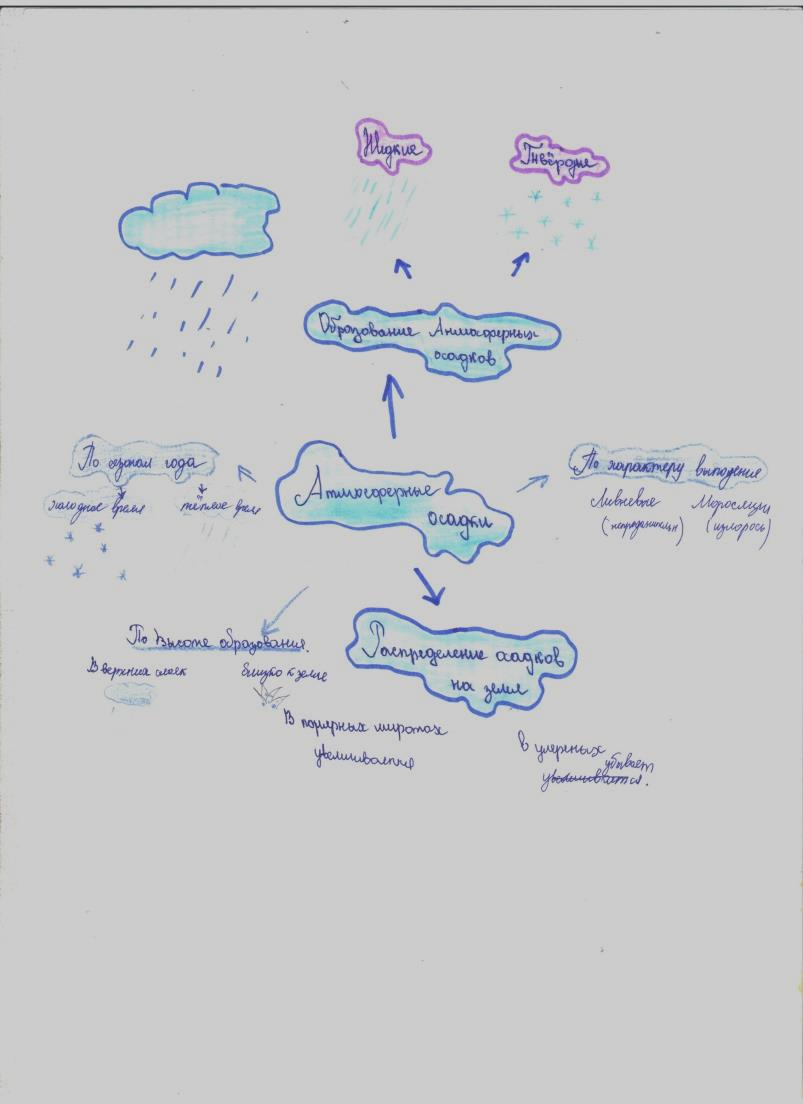 Жидкие
Твёрдые
Образование Атмосферных
осадков
По сезонам года
холодное время
тёплое время
Атмосферные
осадки
По характеру выпадения
Ливневые Моросящие
(изморось)
По высоте образования.
В верхних слоях близко к земле
Распределение осадков
на земле
В полярных широтах
увеличивается
в умеренных
убывает
увеличивается.